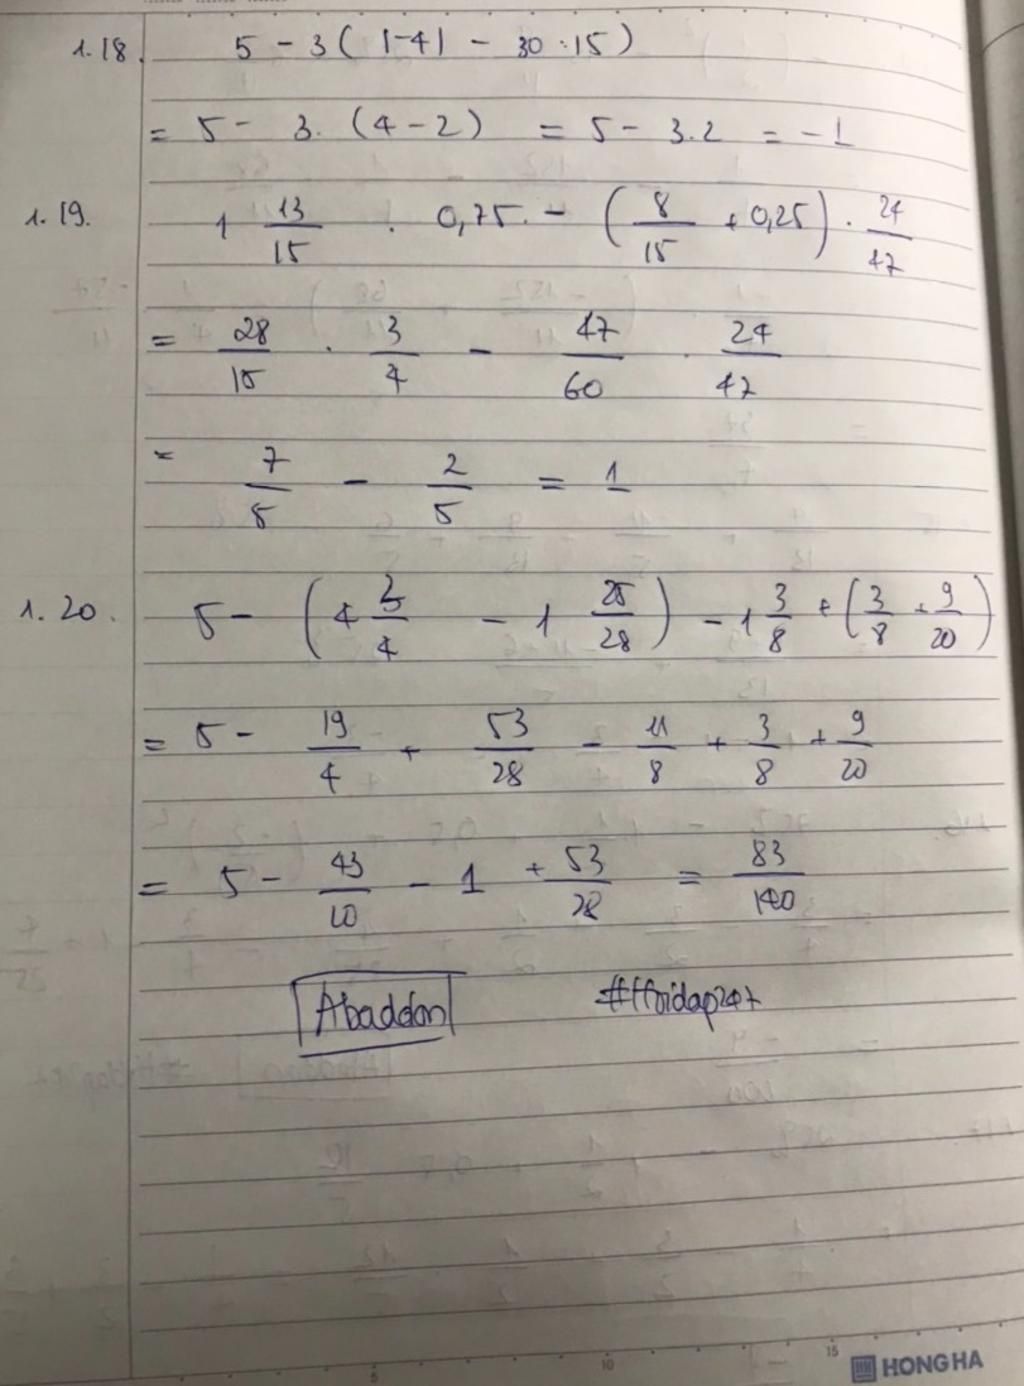 1.18. 5 - 3 ( |-4| - 30 : 15 )
= 5 - 3. (4 - 2) = 5 - 3.2 = -1
1.19. 1 13/15 . 0,75 - ( 8/15 + 0,25 ) . 24/47
= 28/15 . 3/4 - 47/60 . 24/47
= 7/5 - 2/5 = 1
1.20. 5 - ( 4 3/4 - 1 25/28 ) - 1 3/8 + ( 3/8 + 9/20 )
= 5 - 19/4 + 53/28 - 11/8 + 3/8 + 9/20
= 5 - 43/10 - 1 + 53/28 = 83/140
Abaddon
5 10 15
HONG HA